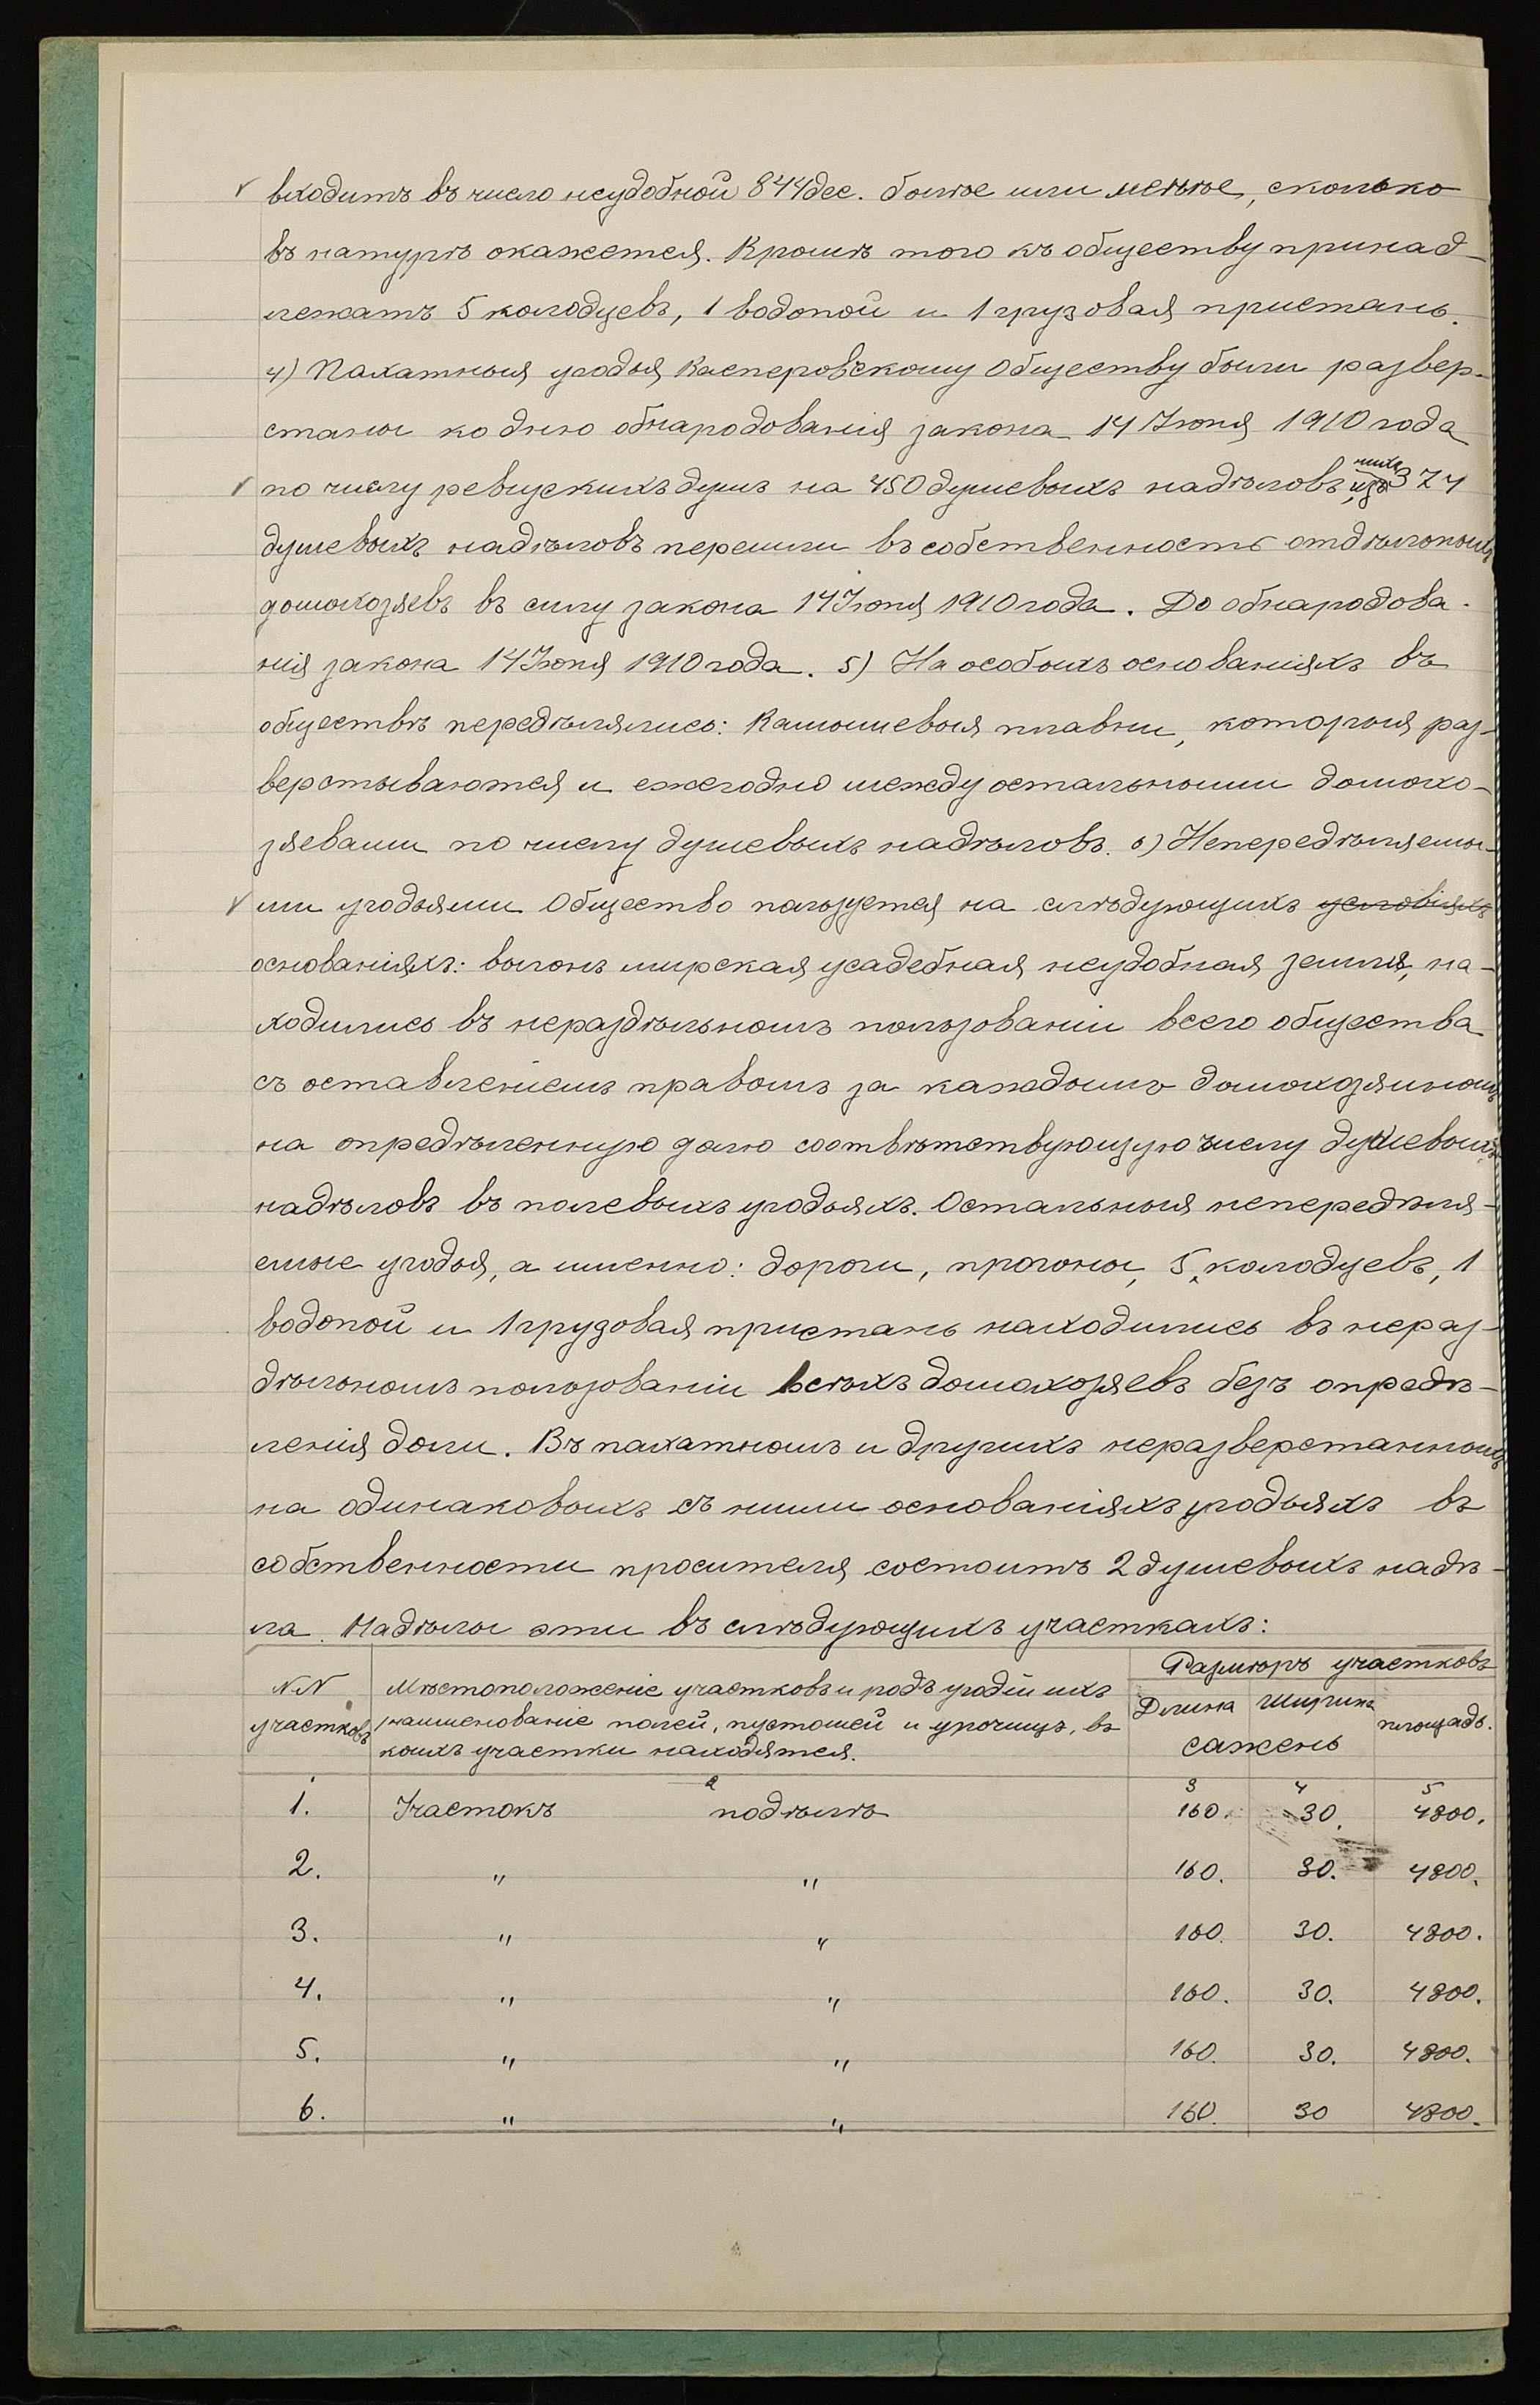 входитъ въ число неудобной 844 дес. болѣе или менѣе, сколько
въ натурѣ окажется. Кромѣ того къ обществу принад-
лежатъ 5 колодцевъ, 1 водопой и 1 грузовая пристань.
4) Пахатныя угодья Касперовскому Обществу были развер-
станы ко дню обнародованія закона 14 Іюня 1910 года
по числу ревизскихъ душъ на 450 душевыхъ надѣловъ, изъ нихъ 374
душевыхъ надѣловъ перешли въ собственность отдѣльныхъ
домохозяевъ въ силу закона 14 Іюня 1910 года. До обнародова-
нія закона 14 Іюня 1910 года. 5) На особыхъ основаніяхъ въ
обществѣ передѣлялись: Камышевыя плавни, которыя раз-
верстываются и ежегодно между остальными домохо-
зяевами по числу душевыхъ надѣловъ. 6) Непередѣляемы-
ми угодьями Общество пользуется на слѣдующихъ условіяхъ
основаніяхъ: выгонъ мирская усадебная неудобная земля, на-
ходились въ нераздѣльномъ пользованіи всего общества
съ оставленіемъ правомъ за каждымъ домохозяиномъ
на опредѣленную долю соотвѣтствующую числу душевыхъ
надѣловъ въ полевыхъ угодьяхъ. Остальныя непередѣля-
емые угодья, а именно: дороги, прогоны, 5 колодцевъ, 1
водопой и 1 грузовая пристань находились въ нераз-
дѣльномъ пользованіи всѣхъ домохозяевъ безъ опредѣ-
ленія доли. Въ пахатномъ и другихъ неразверстанныхъ
на одинаковыхъ съ ними основаніяхъ угодьяхъ въ
собственности просителя состоитъ 2 душевыхъ надѣ-
ла. Надѣлы эти въ слѣдующихъ участкахъ:
NN участковъ
Мѣстоположеніе участковъ и родъ угодій ихъ
наименованіе полей, пустошей и урочищъ, въ
коихъ участки находятся.
Размѣръ участковъ
Длина Ширина площадь.
сажень
1 2 3 4 5
1. Участокъ подѣлъ 160. 30. 4800.
2. " " 160. 30. 4800.
3. " " 160. 30. 4800.
4. " " 160. 30. 4800.
5. " " 160. 30. 4800.
6. " " 160. 30 4800.